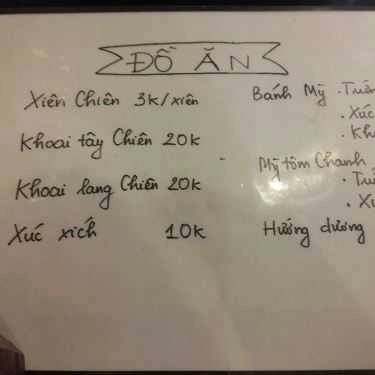 ĐỒ ĂN
Xiên Chiên 3k/xiên
Khoai tây Chiên 20k
Khoai lang Chiên 20k
Xúc xích 10k
Bánh Mỹ .
. Xúc
.
Mỹ tôm Chanh
.
.
Hướng dương